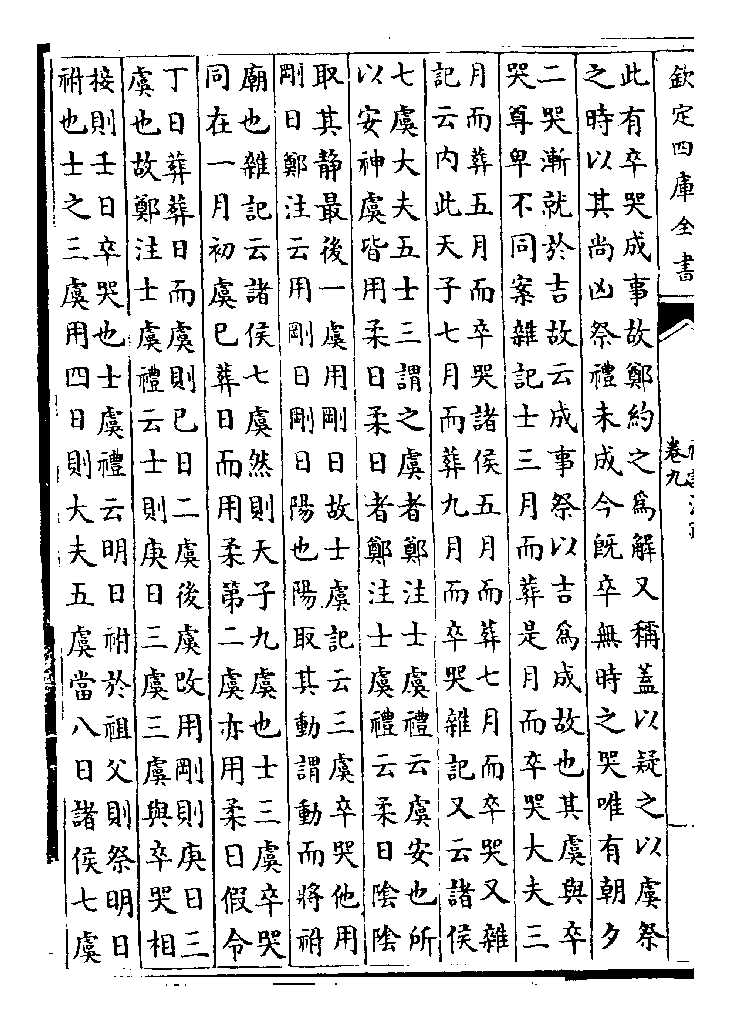 欽定四庫全書
卷九
此有卒哭成事故鄭約之爲解又稱蓋以疑之以虞祭
之時以其尚凶祭禮未成今旣卒無時之哭唯有朝夕
二哭漸就於吉故云成事祭以吉爲成故也其虞與卒
哭尊卑不同案雜記士三月而葬是月而卒哭大夫三
月而葬五月而卒哭諸侯五月而葬七月而卒哭又雜
記云内此天子七月而葬九月而卒哭雜記又云諸侯
七虞大夫五士三謂之虞者鄭注士虞禮云虞安也所
以安神虞皆用柔日柔日者鄭注士虞禮云柔日陰陰
取其静最後一虞用剛日故士虞記云三虞卒哭他用
剛日鄭注云用剛日剛日陽也陽取其動謂動而將祔
廟也雜記云諸侯七虞然則天子九虞也士三虞卒哭
同在一月初虞已葬日而用柔第二虞亦用柔日假令
丁日葬葬日而虞則已日二虞後虞改用剛則庚日三
虞也故鄭注士虞禮云士則庚日三虞三虞與卒哭相
接則壬日卒哭也士虞禮云明日祔於祖父則祭明日
祔也士之三虞用四日則大夫五虞當八日諸侯七虞